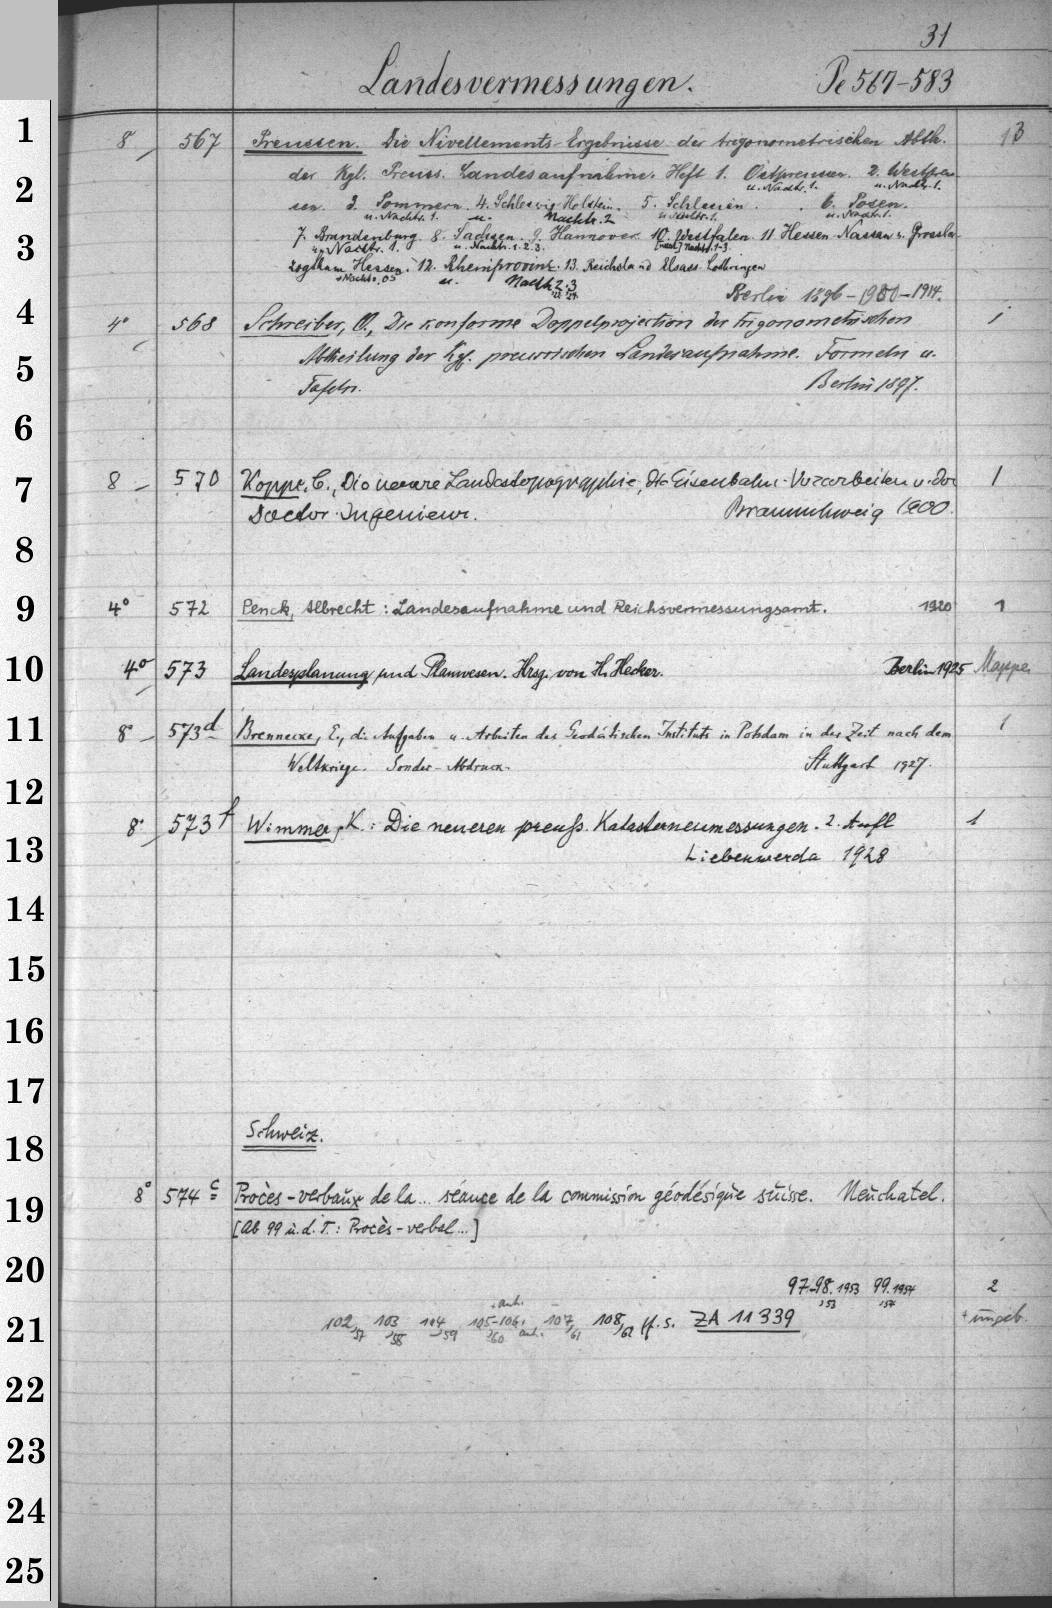 31
Landesvermessungen. Pe 567-583
1
8° 567 Preussen. Die Nivellements-Ergebnisse der trigonometrischen Abth. 13
2
der Kgl. Preuss. Landesaufnahme. Heft 1. Ostpreussen. 2. Westpreu
u. Nachtr. 1. u. Nachtr. 1.
sen. 3. Pommern. 4. Schleswig-Holstein. 5. Schlesien. 6. Posen.
u. Nachtr. 1. u. Nachtr. 2 u. Nachtr. 1. u. Nachtr. 1.
3
7. Brandenburg 8. Sachsen. 9. Hannover. 10. Westfalen. 11 Hessen-Nassau u. Grossher
u. Nachtr. 1. u. Nachtr. 1. 2. 3. Nachtr. 1-3
zogthum Hessen. 12. Rheinprovinz. 13. Reichsland Elsass-Lothringen
u. Nachtr. 2. 3
Berlin 1896-1900-1914.
4
4° 568 Schreiber, O., Die konforme Doppelprojection der trigonometrischen 1
Abtheilung der Kgl. preussischen Landesaufnahme. Formeln u.
5
Tafeln. Berlin 1897.
6
7
8 570 Koppe, C., Die neuere Landestopographie, die Eisenbahn-Vorarbeiten u. der 1
Doctor-Ingenieur. Braunschweig 1900.
8
9
4° 572 Penck, Albrecht: Landesaufnahme und Reichsvermessungsamt. 1920 1
10
4° 573 Landesplanung und Planwesen. Hrsg. von H. Hecker. Berlin 1925 Mappe
11
8° 573d Brennecke, E., die Aufgaben u. Arbeiten des Geodätischen Instituts in Potsdam in der Zeit nach dem 1
Weltkriege. Sonder-Abdruck. Stuttgart 1927.
12
8° 573f Wimmer, K.: Die neueren preuß. Katasterneumessungen. 2. Aufl 1
13
Liebenwerda 1928
14
15
16
17
18
Schweiz.
19
8° 574c Procès-verbaux de la... séance de la commission géodésique suisse. Neuchatel.
[Ab 99 u. d. T.: Procès-verbal...]
20
97-98. 1953 99. 1954 2
153 154
21
+ anh.
102,57 103,58 104,59 105-106,60 anh. 107,61 108,62 ff. s. ZA 11339 + ungeb.
22
23
24
25